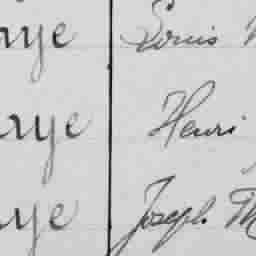 aye Louis
aye Henri
aye Joseph M